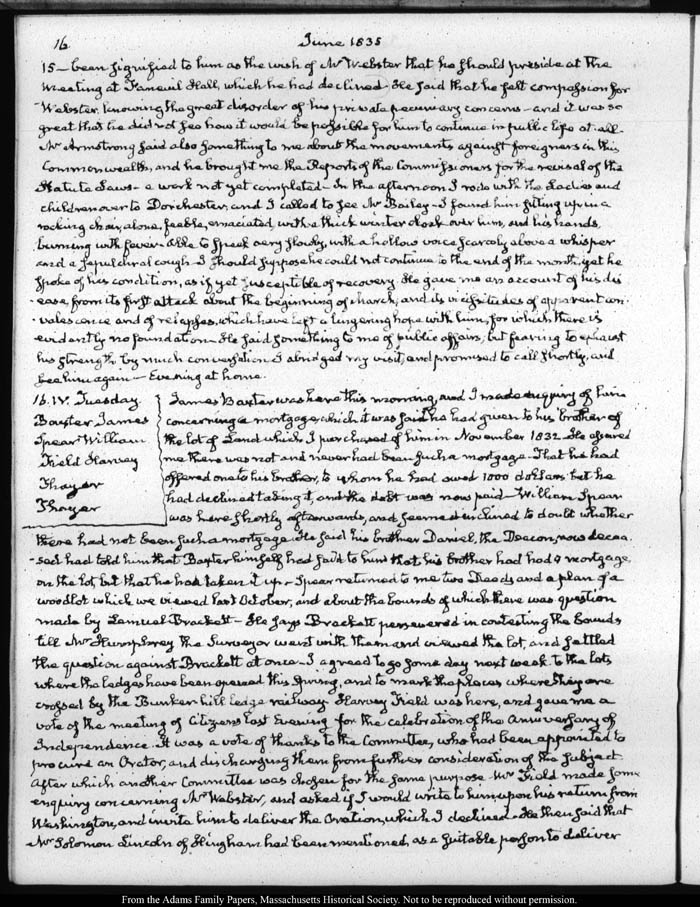 16
June 1835
15 — been signified to him as the wish of Mr Webster that he should preside at the
Meeting at Faneuil Hall, which he had declined – He said that he felt compassion for
Webster, knowing the great disorder of his private pecuniary concerns – and it was so
great that he did not see how it would be possible for him to continue in public life at all.
Mr Armstrong said also something to me about the movements against foreigners in this
Commonwealth, and he brought me the Reports of the Commissioners for the revisal of the
Statute Laws – a work not yet completed – In the afternoon I rode with the Ladies and
children over to Dorchester, and I called to see Mr Bailey – I found him sitting up in a
rocking chair, alone, feeble, emaciated, with a thick winter cloak over him, and his hands
burning with fever – able to speak very slowly, with a hollow voice scarcely above a whisper
and a sepulchral cough – I should suppose he could not continue to the end of the month, yet he
spoke of his condition, as if yet susceptible of recovery. He gave me an account of his dis
-ease, from its first attack about the beginning of March, and its vicissitudes of apparent con
-valescence and of relapses, which have left a lingering hope with him, for which there is
evidently no foundation – He said something to me of public affairs; but fearing to exhaust
his strength by much conversation I abridged my visit, and promised to call shortly, and
see him again – Evening at home.
16. IV. Tuesday
Baxter James
Spear William
Field Harvey
Thayer
Thayer
James Baxter was here this morning, and I made enquiry of him
concerning a mortgage, which it was said he had given to his brother of
the lot of Land which I purchased of him in November 1832. He assured
me there was not and never had been such a mortgage – That he had
offered one to his brother, to whom he had owed 1000 dollars but he
had declined taking it, and the debt was now paid – William Spear
was here shortly afterwards, and seemed inclined to doubt whether
there had not been such a mortgage. He said his brother Daniel, the Deacon, now decea
-sed had told him that Baxter himself had said to him that his brother had had a mortgage
on the lot, but that he had taken it up – Spear returned to me two Deeds and a plan of a
woodlot which we viewed last October, and about the bounds of which there was question
made by Lemuel Brackett – He says Brackett persevered in contesting the bounds
till Mr Humphrey the Surveyor went with them and viewed the lot, and settled
the question against Brackett at once – I agreed to go some day next week to the lots
where the ledges have been opened this Spring, and to mark the places where they are
crossed by the Bunker hill ledge railway. Harvey Field was here, and gave me a
vote of the meeting of Citizens last Evening for the celebration of the Anniversary of
Independence. It was a vote of thanks to the Committee, who had been appointed to
procure an Orator, and discharging them from further consideration of the subject
After which another Committee was chosen for the same purpose – Mr Field made some
enquiry concerning Mr Webster, and asked if I would write to him upon his return from
Washington, and invite him to deliver the Oration, which I declined – He then said that
Mr Solomon Lincoln of Hingham had been mentioned, as a suitable person to deliver
From the Adams Family Papers, Massachusetts Historical Society. Not to be reproduced without permission.